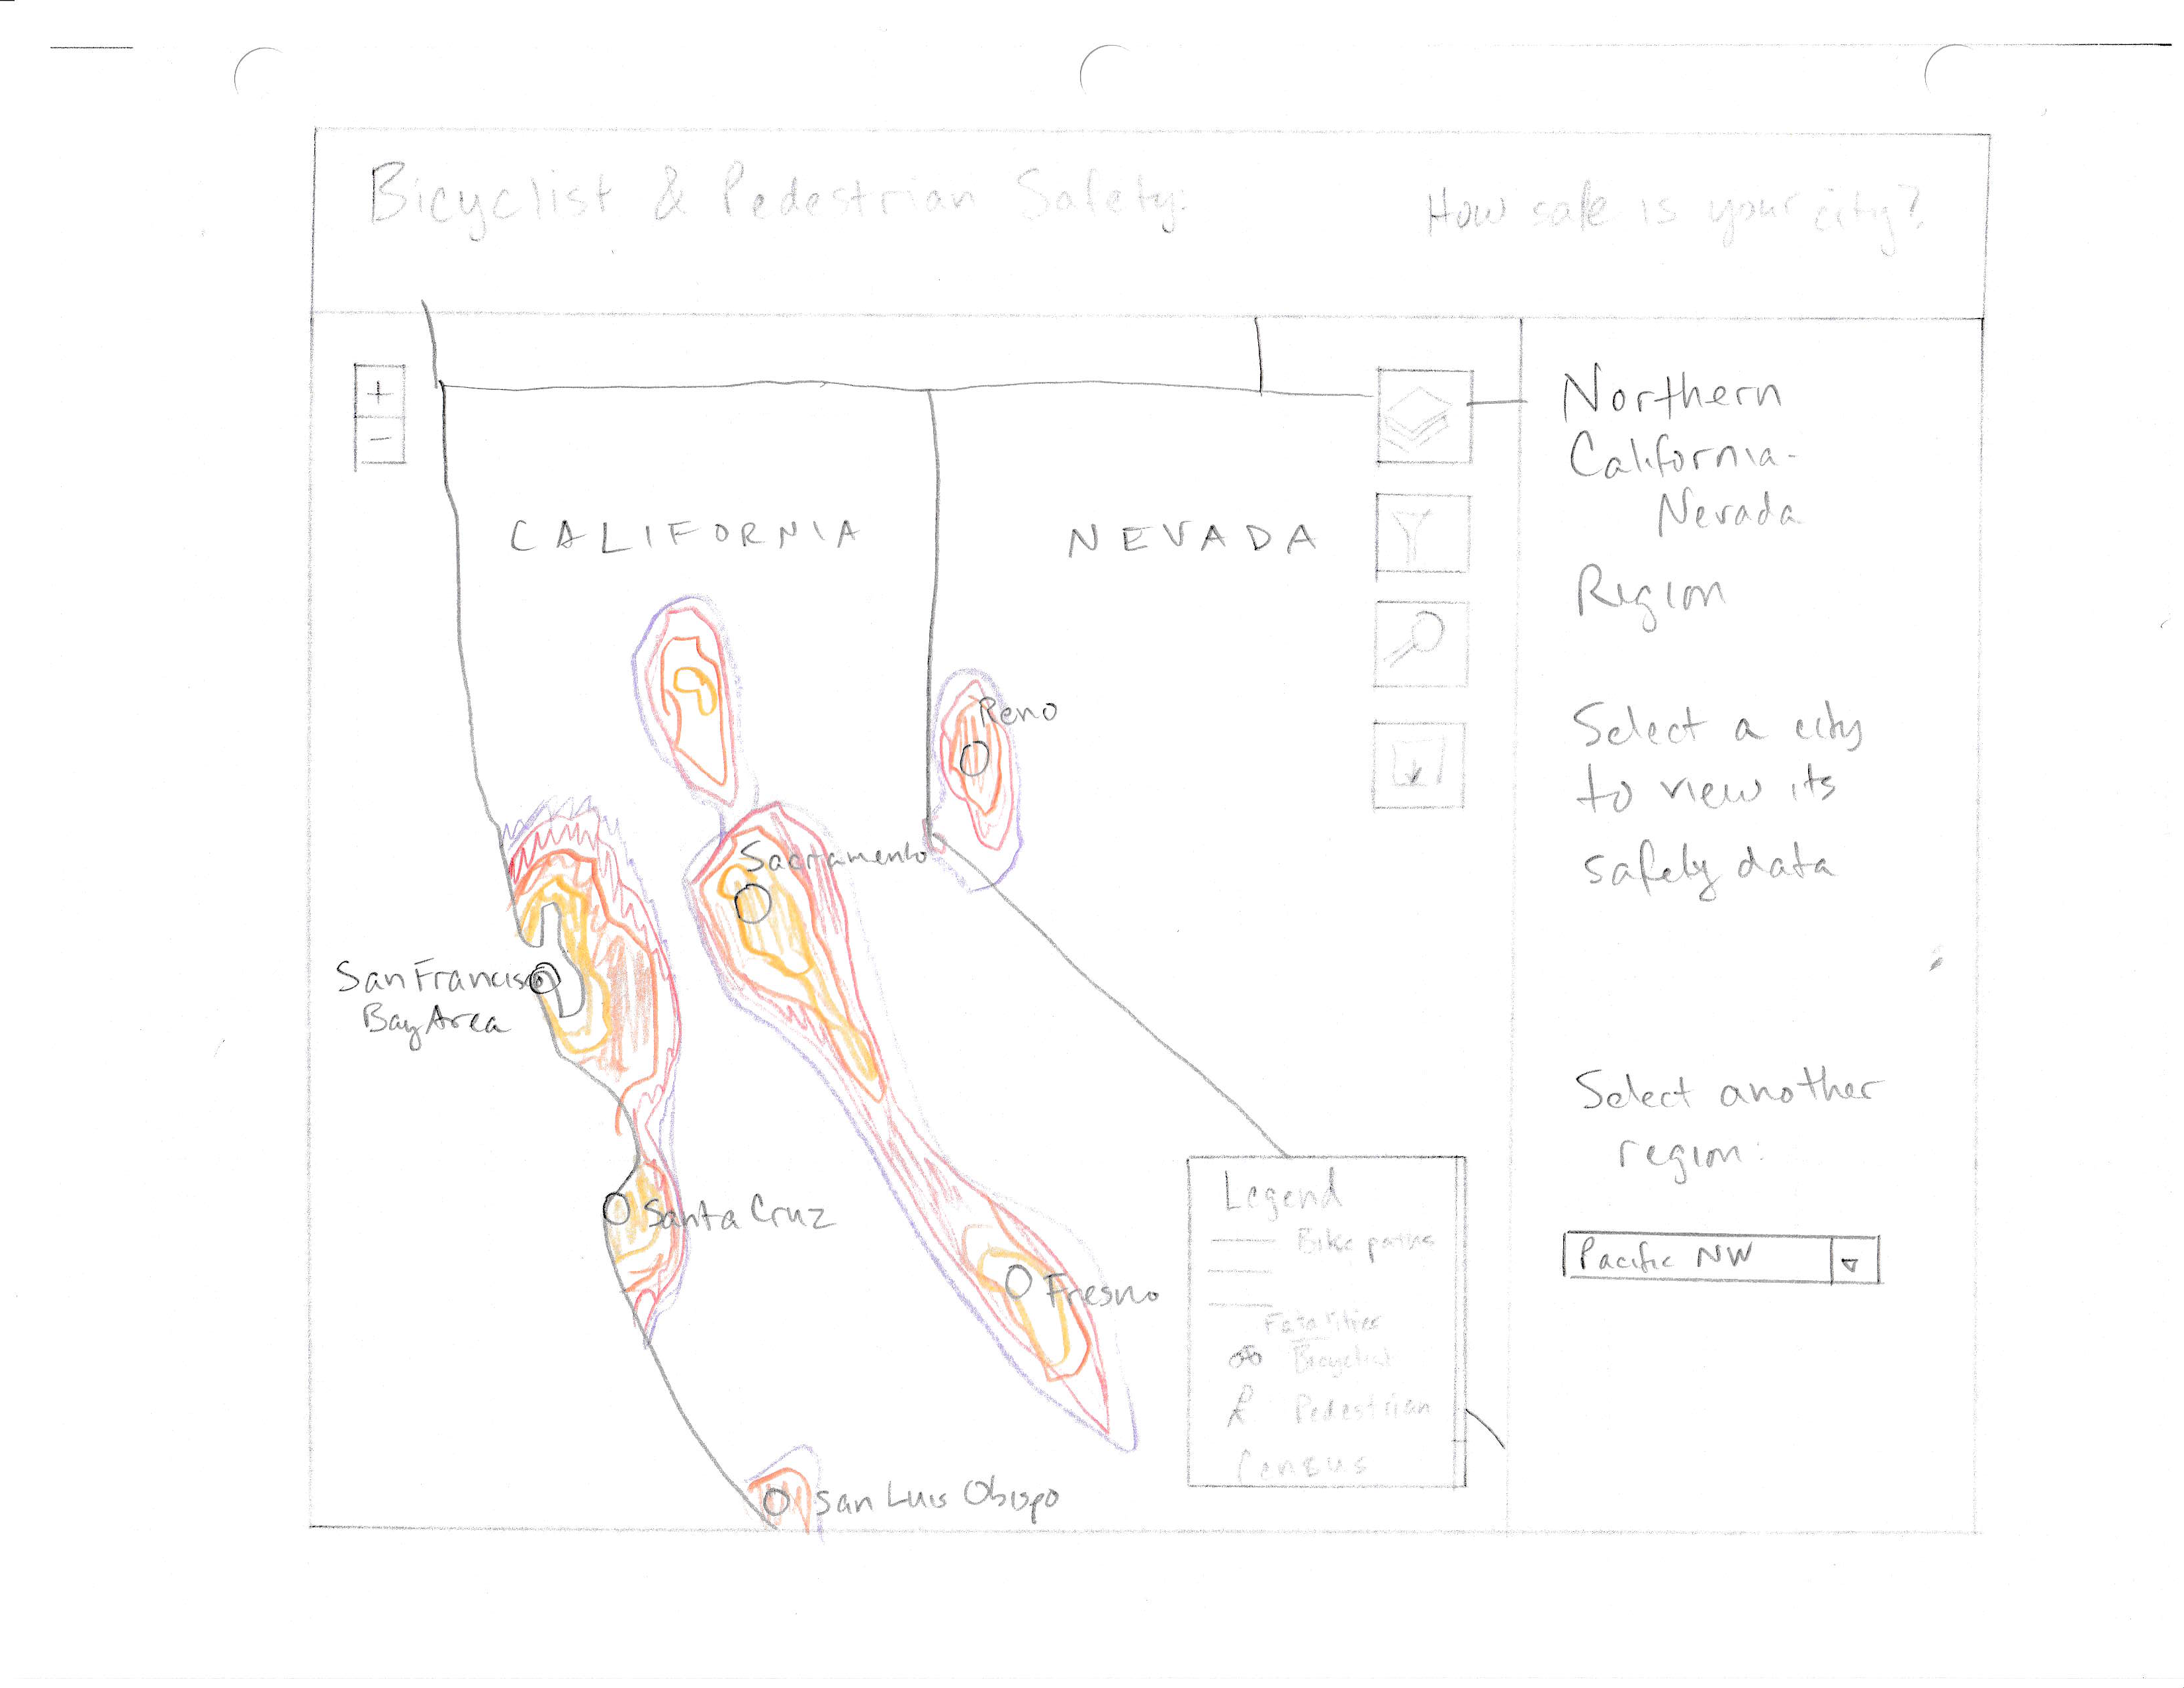 Bicyclist & Pedestrian Safety:
How safe is your city?
+
-
CALIFORNIA
NEVADA
Reno
Sacramento
San Francisco
Bay Area
Santa Cruz
Fresno
San Luis Obispo
Legend
Bike paths
Fatalities
Bicyclist
Pedestrian
Census
Northern
California-
Nevada
Region
Select a city
to view its
safety data
Select another
region:
Pacific NW